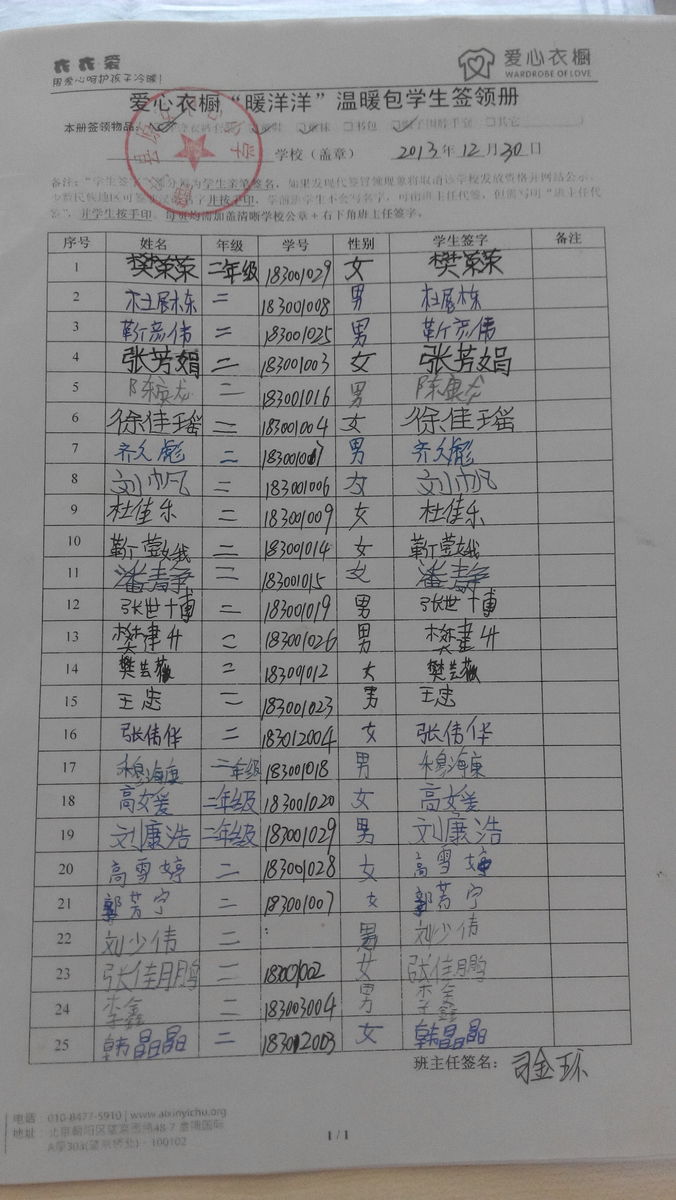 衣衣爱
用爱心呵护孩子冷暖!
爱心衣橱
WARDROBE OF LOVE
爱心衣橱“暖洋洋”温暖包学生签领册
本册签领物品: 书包 其它
学校（盖章） 2013年12月30日
备注：“学生签字”部分须为学生亲笔签名，如果发现代签冒领现象将取消该学校发放资格并网站公示。
少数民族地区可签 名字并按手印，学前班学生不会写名字，可由班主任代签，但需写明“班主任代
签”，并学生按手印。每页均需加盖清晰学校公章+右下角班主任签字。
序号 姓名 年级 学号 性别 学生签字 备注
1 樊荣荣 二年级 183001029 女 樊荣荣
2 杜展栋 二 183001008 男 杜展栋
3 靳彦伟 二 183001025 男 靳彦伟
4 张芳娟 二 183001003 女 张芳娟
5 陈康龙 二 183001016 男 陈康龙
6 徐佳瑶 二 183001004 女 徐佳瑶
7 齐久彪 二 183001017 男 齐久彪
8 刘帆 二 183001006 女 刘帆
9 杜佳乐 二 183001009 女 杜佳乐
10 靳莹娥 二 183001014 女 靳莹娥
11 潘青静 二 183001015 女 潘青静
12 张世博 二 183001019 男 张世博
13 樊建升 二 183001026 男 樊建升
14 樊芸薇 二 183001012 女 樊芸薇
15 王忠 二 183001023 男 王忠
16 张伟华 二 183012004 女 张伟华
17 穆海康 二年级 183001018 男 穆海康
18 高媛 二年级 183001020 女 高媛
19 刘康浩 二年级 183001029 男 刘康浩
20 高雪婷 二 183001028 女 高雪婷
21 郭芳宁 二 183001007 女 郭芳宁
22 刘少伟 二 男 刘少伟
23 张佳鹏 二 183001002 女 张佳鹏
24 李鑫 二 183003004 男 李鑫
25 韩晶晶 二 183012003 女 韩晶晶
班主任签名: 司金环
电话：010-8477-5910 | www.aixinyichu.org
地址：北京朝阳区望京
A座303(望京桥北) · 100102
1 / 1